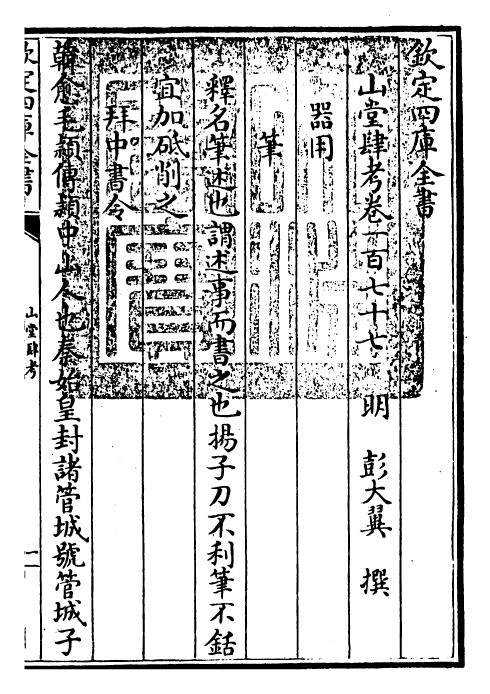 欽定四庫全書
山堂肆考卷一百七十七　明　彭大翼　撰
器用
筆
釋名筆述也謂述事而書之也揚子刀不利筆不銛
宜加砥削之
拜中書令
韓愈毛穎傳穎中山人也秦始皇封諸管城號管城子
欽定四庫全書
山堂肆考
一